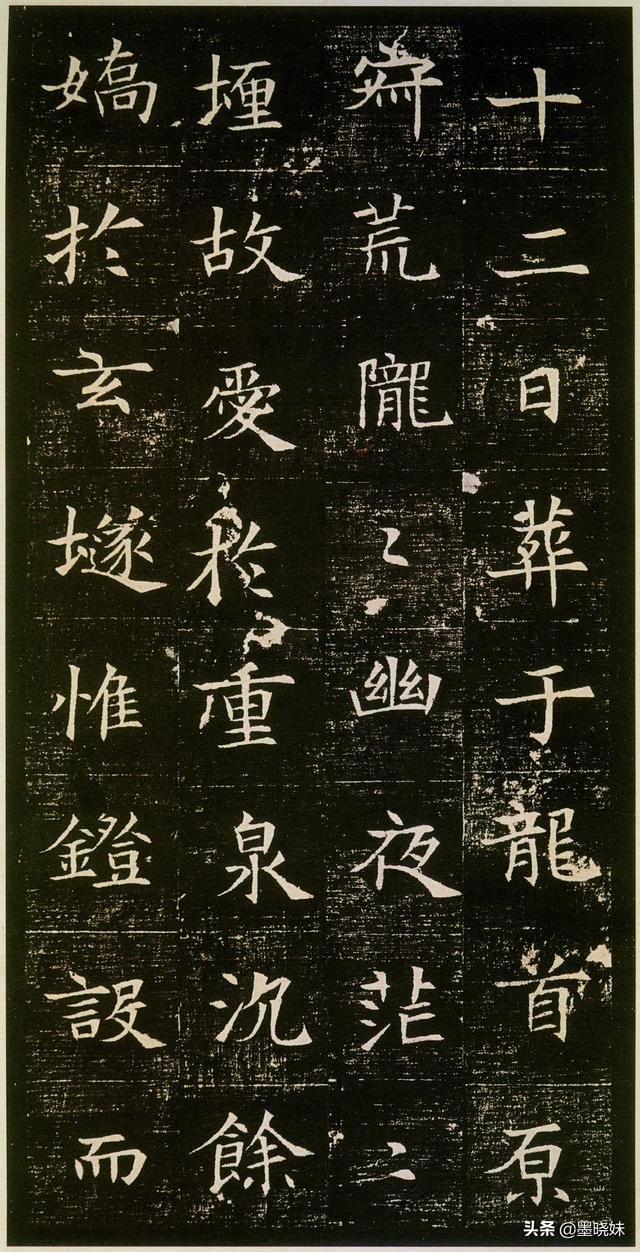 十二日葬于龍首原
荒隴〻幽夜茫〻
堙故愛於重泉沉餘
嬌於玄墜惟鐙設而
头条 @墨晓妹